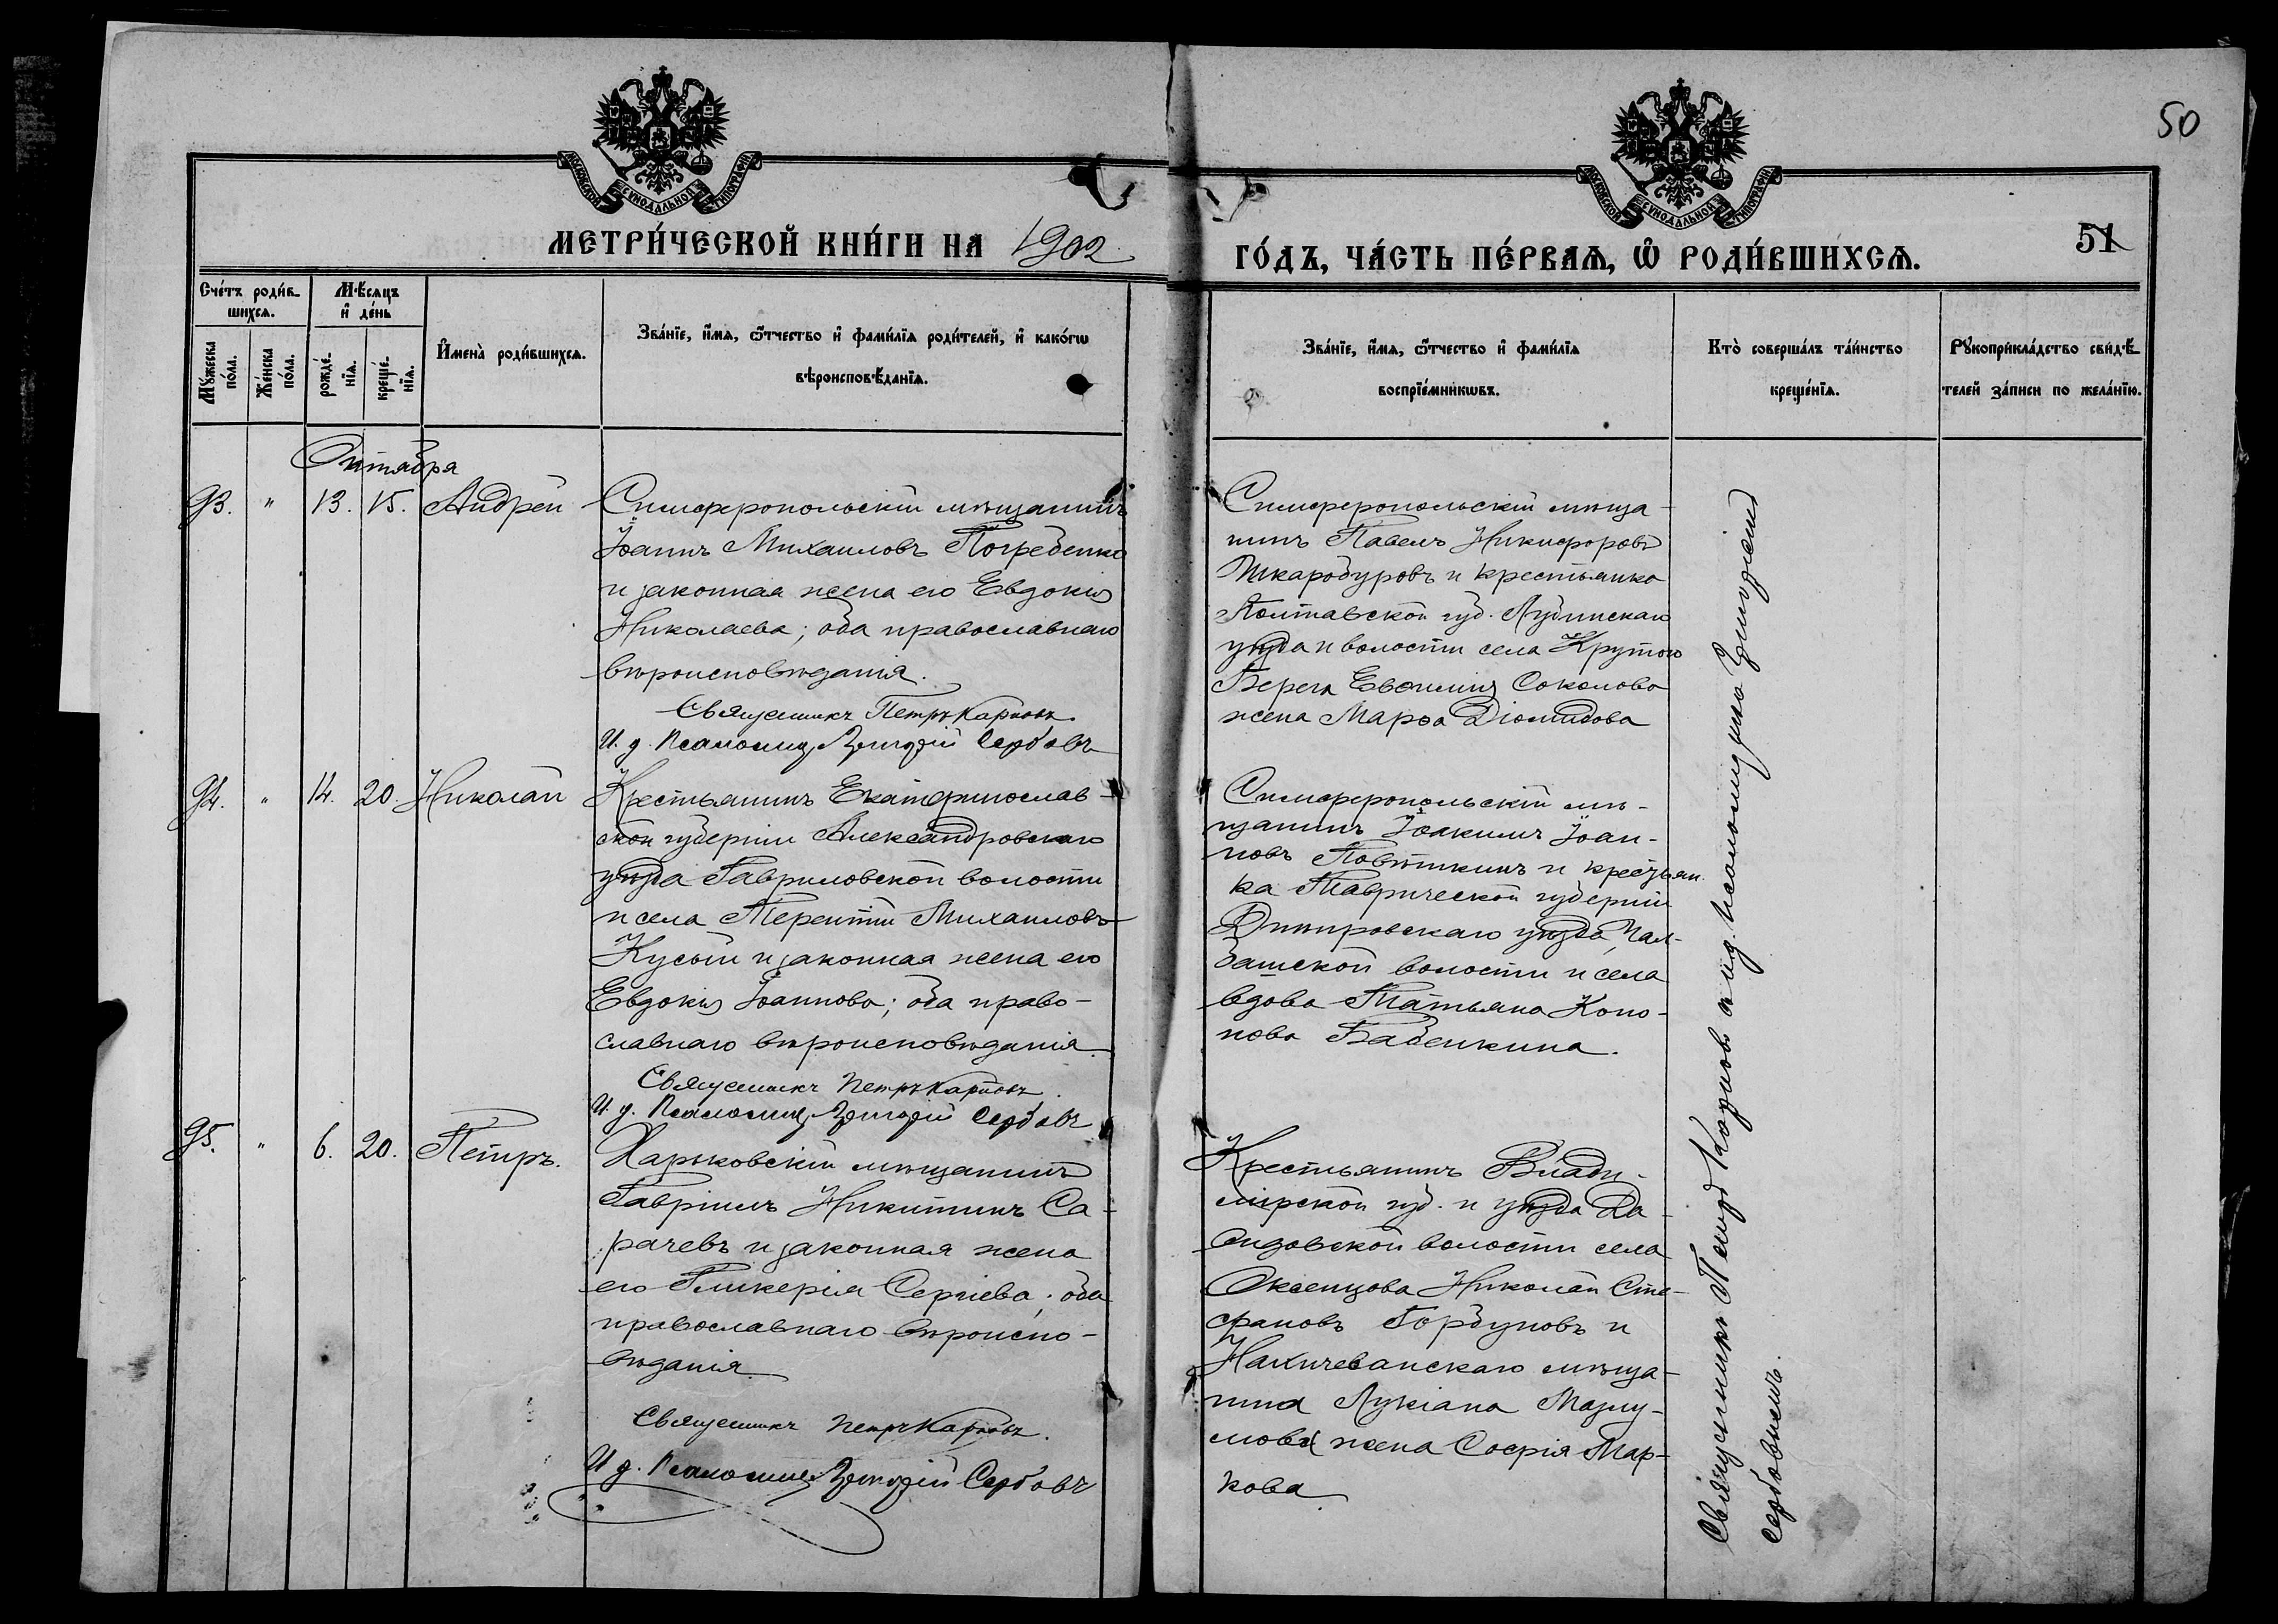 50
МОСКОВСКОЙ СѴНОДАЛЬНОЙ ТИПОГРАФІИ
МОСКОВСКОЙ СѴНОДАЛЬНОЙ ТИПОГРАФІИ
МЕТРИ́ЧЕСКОЙ КНИ́ГИ НА 1902
ГО́ДЪ, ЧА́СТЬ ПЕ́РВАѦ, Ѡ҆ РОДИ́ВШИХСѦ.
51
Сче́тъ роди́в-
шихсѧ.
Мꙋ́жеска по́ла.
Же́нска по́ла.
Мѣ́сѧцъ
и҆ де́нь
рожде́-нїѧ.
креще́-нїѧ.
И҆мена̀ роди́вшихсѧ.
Зва́нїе, и҆́мѧ, ѻ҆́тчество и҆ фами́лїѧ роди́телей, и҆ како́гѡ
вѣроисповѣ́данїѧ.
Зва́нїе, и҆́мѧ, ѻ҆́тчество и҆ фами́лїѧ
воспрїе́мникѡвъ.
Кто̀ соверша́лъ та́инство
креще́нїѧ.
Рꙋкоприкла́дство свидѣ́-
телей за́писи по жела́нїю.
Октября
93. " 13. 15. Андрей
Симферопольскій мѣщанинъ
Іоаннъ Михаиловъ Погребенко
и законная жена его Евдокія
Николаева; оба православнаго
вѣроисповѣданія.
Священникъ Петръ Карповъ.
И. д. Псаломщ. Григорій Сербовъ
Симферопольскій мѣща-
нинъ Павелъ Никифоровъ
Шкаробуровъ и крестьянка
Полтавской губ. Лубинскаго
уѣзда и волости села Крутого
Берега Евѳимія Соколова
жена Марѳа Діомидова
94. " 14. 20. Николай
Крестьянинъ Екатеринослав-
ской губерніи Александровскаго
уѣзда Гавриловской волости
и села Терентій Михаиловъ
Кусый и законная жена его
Евдокія Іоаннова; оба право-
славнаго вѣроисповѣданія.
Священникъ Петръ Карповъ.
И. д. Псаломщ. Григорій Сербовъ
Симферопольскій мѣ-
щанинъ Іоакимъ Іоан-
новъ Повѣткинъ и крестьян-
ка Таврической губерніи
Днѣпровскаго уѣзда, Чал-
башской волости и села
вдова Татьяна Коно-
нова Бабенкина.
95. " 6. 20. Петръ.
Харьковскій мѣщанинъ
Гавріилъ Никитинъ Са-
рачевъ и законная жена
его Гликерія Сергіева; оба
православнаго вѣроиспо-
вѣданія.
Священникъ Петръ Карповъ.
И. д. Псаломщ. Григорій Сербовъ
Крестьянинъ Влади-
мірской губ. и уѣзда Да-
видовской волости села
Оксенцова Николай Сте-
фановъ Горбуновъ и
Нахичеванскаго мѣща-
нина Лукіана Мазлу-
мова жена Софія Мар-
кова
Священникъ Петръ Карповъ и и.д. псаломщика Григорій
Сербовымъ.